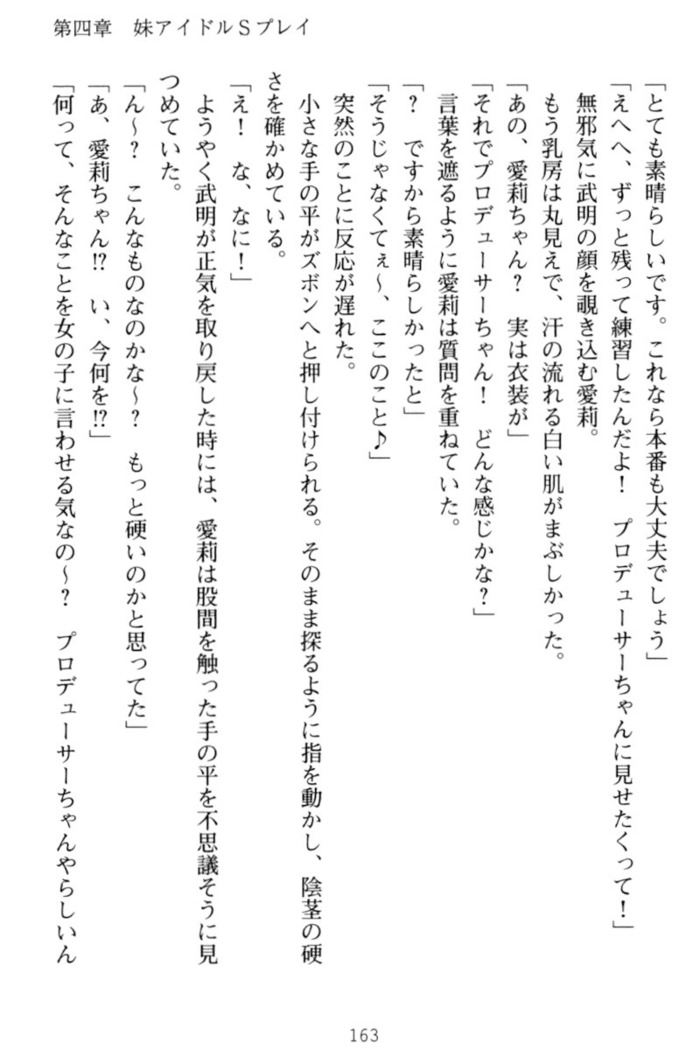 第四章　妹アイドルＳプレイ
「とても素晴らしいです。これなら本番も大丈夫でしょう」
「えへへ、ずっと残って練習したんだよ！　プロデューサーちゃんに見せたくって！」
無邪気に武明の顔を覗き込む愛莉。
もう乳房は丸見えで、汗の流れる白い肌がまぶしかった。
「あの、愛莉ちゃん？　実は衣装が」
「それでプロデューサーちゃん！　どんな感じかな？」
言葉を遮るように愛莉は質問を重ねていた。
「？　ですから素晴らしかったと」
「そうじゃなくてぇ～、ここのこと♪」
突然のことに反応が遅れた。
小さな手の平がズボンへと押し付けられる。そのまま探るように指を動かし、陰茎の硬
さを確かめている。
「え！　な、なに！」
ようやく武明が正気を取り戻した時には、愛莉は股間を触った手の平を不思議そうに見
つめていた。
「ん～？　こんなものなのかな～？　もっと硬いのかと思ってた」
「あ、愛莉ちゃん!?　い、今何を!?」
「何って、そんなことを女の子に言わせる気なの～？　プロデューサーちゃんやらしいん
163